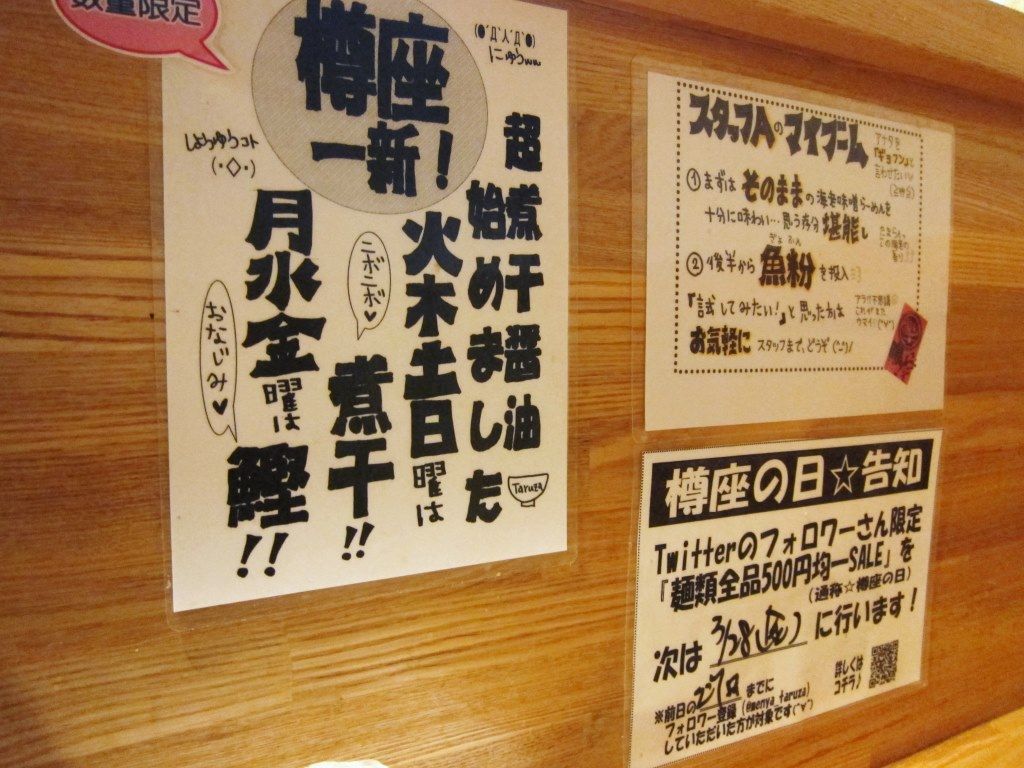 数量限定
樽座
一新！
(●´Д`人´Д`●)
にゅうww
超煮干醤油
始めました
Taruza
火木土日曜は
煮干!!
ニボニボ♥
しょうゆうコト
(・◇・)
月水金曜は
鰹!!
おなじみ♥
スタッフAのマイブーム
アナタを
「ギョフン」と
言わせたい!!
①まずはそのままの海老味噌らーめんを
十分に味わい…思う存分堪能し
②後半から魚粉を投入
ぎょふん
『試してみたい！』と思った方は
お気軽にスタッフまで、どうぞ(^-^)/
アラ不思議
これがまた
ウマイ!(°∀°)
樽座の日☆告知
Twitterのフォロワーさん限定
「麺類全品500円均一SALE」を
(通称☆樽座の日)
次は 3/28(金) に行います！
※前日の27日までに
フォロワー登録(@menya_taruza)
していただいた方が対象です(^∀^)
詳しくは
コチラ♪